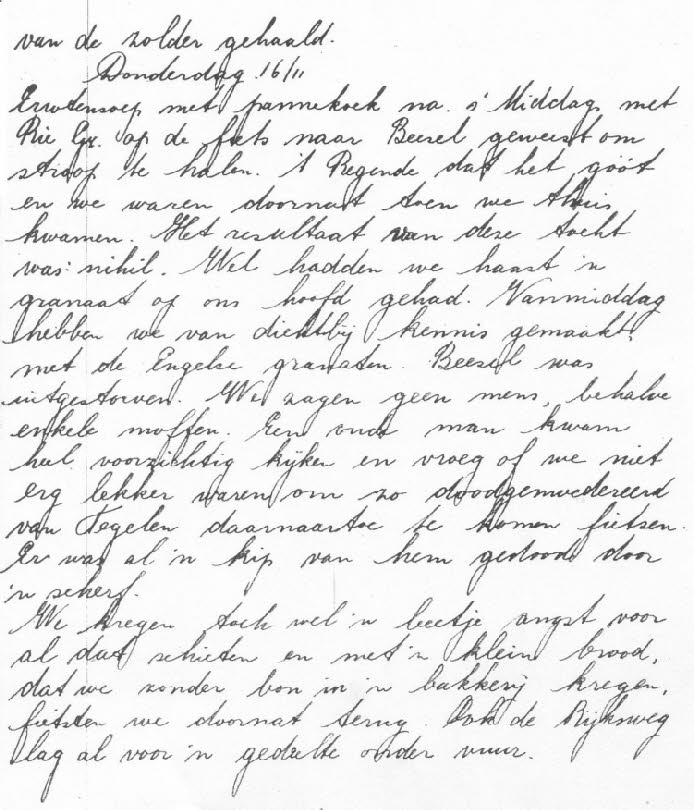 van de zolder gehaald.
Donderdag 16/11
Erwtensoep met pannekoek na. s' Middags met
Rie Gr. op de fiets naar Beesel geweest om
stroop te halen. 't Regende dat het goot
en we waren doornat toen we thuis
kwamen. Het resultaat van deze tocht
was: nihil. Wel hadden we haast 'n
granaat op ons hoofd gehad. Vanmiddag
hebben we van dichtbij kennis gemaakt
met de Engelse granaten. Beesel was
uitgestorven. We zagen geen mens, behalve
enkele moffen. Een oude man kwam
heel voorzichtig kijken en vroeg of we niet
erg lekker waren om zo doodgemoedereerd
van Tegelen daarnaartoe te komen fietsen.
Er was al 'n kip van hem gedood door
'n scherf.
We kregen toch wel 'n beetje angst voor
al dat schieten en met 'n klein brood,
dat we zonder bon in 'n bakkerij kregen,
fietsten we doornat terug. Ook de Rijksweg
lag al voor 'n gedeelte onder vuur.